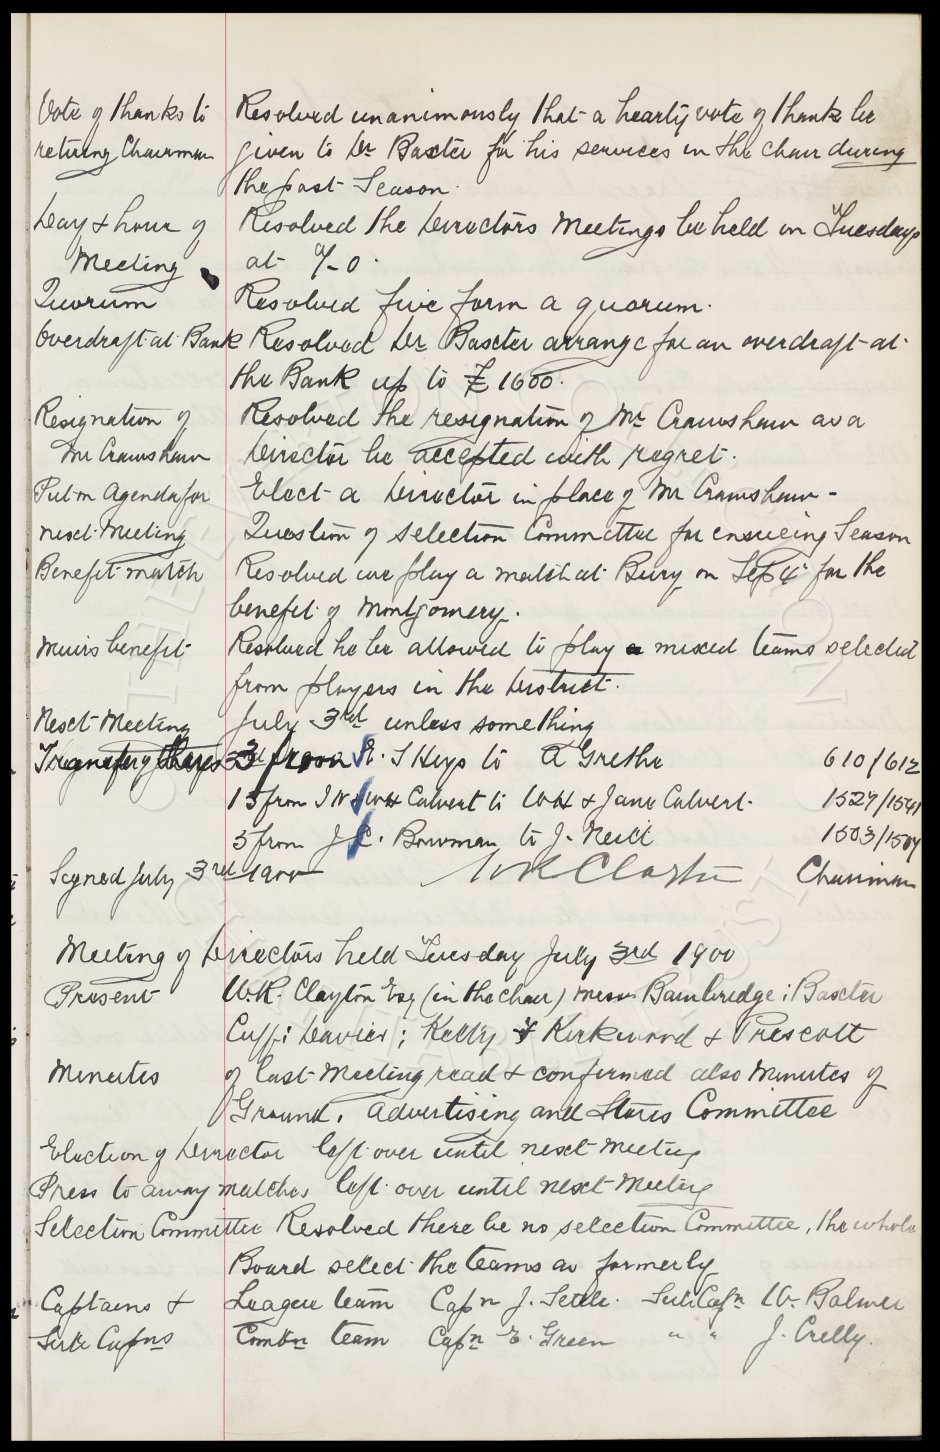 Vote of thanks to Resolved unanimously that a hearty vote of thanks be
retiring Chairman given to Dr Baxter for his services in the chair during
the past Season.
Day & hour of Resolved the Directors Meetings be held on Tuesdays
Meeting at 7-0.
Quorum Resolved five form a quorum.
Overdraft at Bank Resolved Dr Baxter arrange for an overdraft at
the Bank up to £1600.
Resignation of Resolved the resignation of Mr Crawshaw as a
Mr Crawshaw Director be accepted with regret.
Put on Agenda for Elect a Director in place of Mr Crawshaw -
next Meeting Question of Selection Committee for ensueing Season
Benefit match Resolved we play a match at Bury on Sep 4 for the
benefit of Montgomery.
Muirs benefit Resolved he be allowed to play a mixed teams selected
from players in the District.
Next Meeting July 3rd unless something
Transfer of Shares 3 from S. Heys to A Grethe 610/612
15 from Calvert to W H & Jane Calvert. 1527/1541
5 from J C. Bowman to J. Neill 1503/1507
Signed July 3rd 1900 W R Clayton Chairman
Meeting of Directors held Tuesday July 3rd 1900
Present W.R. Clayton Esq (in the chair) Messrs Bainbridge; Baxter
Cuff; Davies; Kelly; Kirkwood & Prescott
Minutes of last Meeting read & confirmed also Minutes of
Ground, Advertising and Stores Committee
Election of Director left over until next Meeting
Press to away matches left over until next Meeting
Selection Committee Resolved there be no selection Committee, the whole
Board select the teams as formerly
Captains & League team Capn J. Settle. Sub Capn W. Balmer
Sub Capns Combn team Capn E. Green " " J. Crelly.